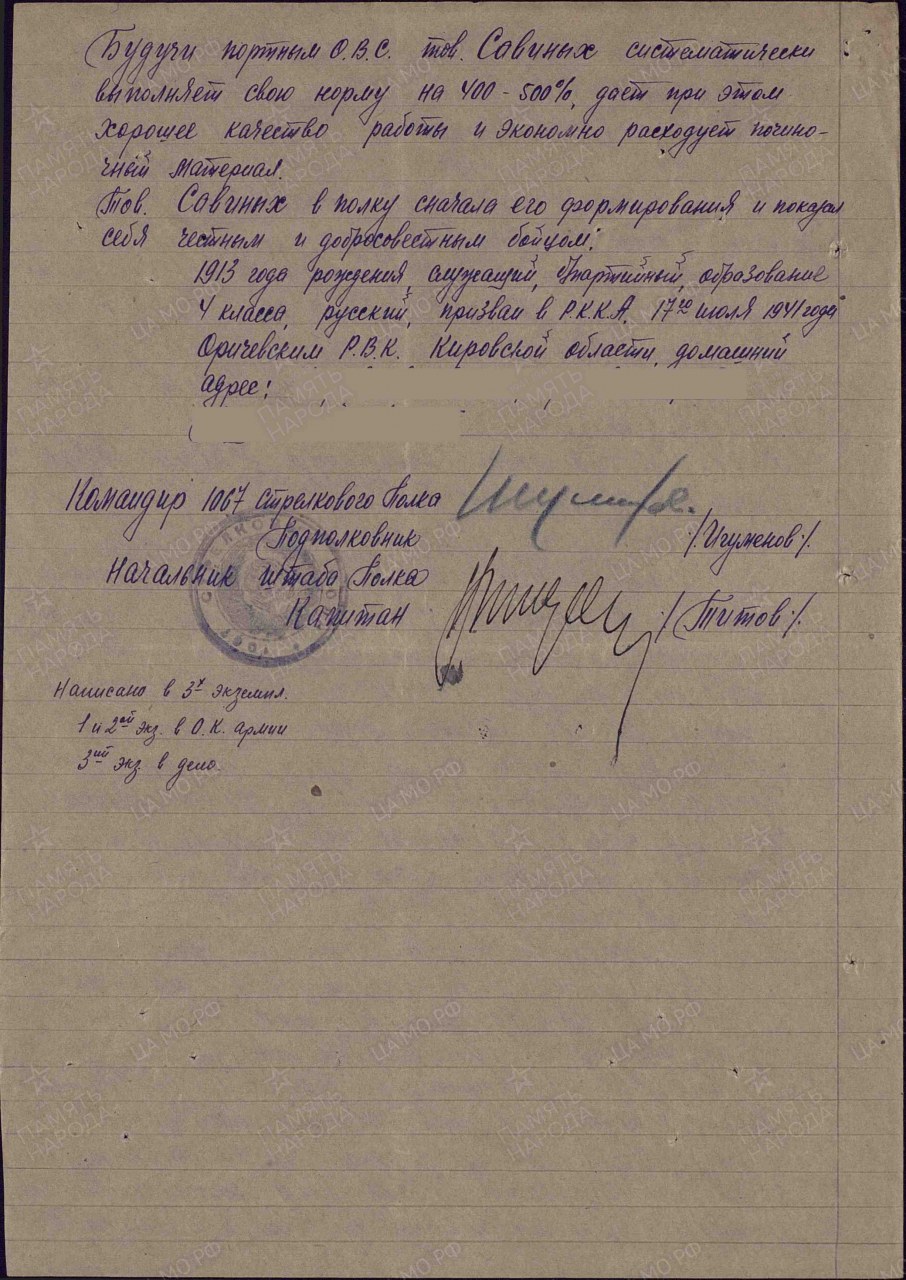 Будучи портным О.В.С. тов. Савиных систематически
выполняет свою норму на 400-500%, дает при этом
хорошее качество работы и экономно расходует почино-
чный материал.
Тов. Савиных в полку сначала его формирования и показал
себя честным и добросовестным бойцом.
1913 года рождения, служащий, образование
4 класса, русский, призван в Р.К.К.А. 17го июля 1941 года
Оричевским Р.В.К. Кировской области, домашний
адрес:
Командир 1067 Стрелкового Полка
Подполковник /Игуменов/.
Начальник штаба Полка
Капитан /Титов/.
Написано в 3х экземпл.
1 и 2ой экз. в О.К. армии
3ий экз в дело.
ПАМЯТЬ
НАРОДА
ЦА МО РФ